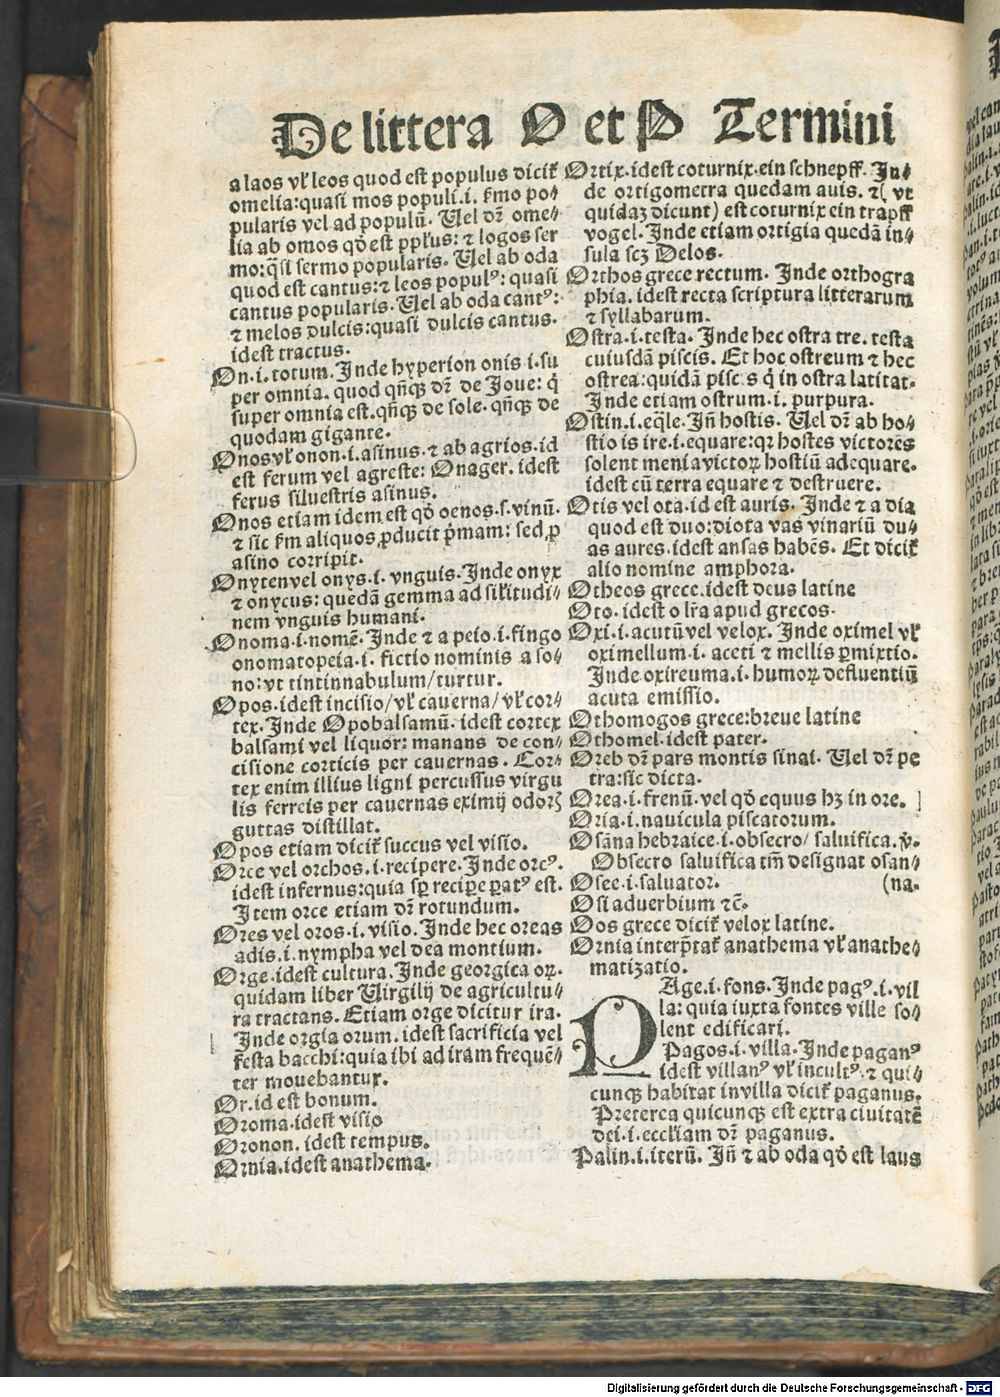 De littera O et P Termini
a laos vł leos quod est populus dicit̃
omelia:quasi mos populi.i. ẜmo po⸗
pularis vel ad populũ. Uel dr̃ ome⸗
lia ab omos qd̓ est ppłus: ⁊ logos ser
mo:q̃si sermo popularis. Uel ab oda
quod est cantus:⁊ leos popul⁹: quasi
cantus popularis. Uel ab oda cant⁹:
⁊ melos dulcis:quasi dulcis cantus.
idest tractus.
On.i.totum. Inde hyperion onis i.su
per omnia. quod qñqꝫ dr̃ de Joue: q̓
super omnia est.qñqꝫ de sole. qñqꝫ de
quodam gigante.
Onos vł onon.i.asinus.⁊ ab agrios.id
est ferum vel agreste: Onager. idest
ferus siluestris asinus.
Onos etiam idem est qd̓ oenos.s.vinũ.
⁊ sic ẜm aliquos ꝓducit p̓mam: sed ꝓ
asino corripit.
Onyten vel onys.i.vnguis.Inde onyx
⁊ onycus: quedã gemma ad siłitudi⸗
nem vnguis humani.
Onoma.i.nomẽ. Inde ⁊ a peio.i.fingo
onomatopeia.i. fictio nominis a so⸗
no:vt tintinnabulum/turtur.
Opos.idest incisio/vł cauerna/vł cor⸗
tex. Inde Opobalsamũ. idest cortex
balsami vel liquor: manans de con⸗
cisione corticis per cauernas. Cor⸗
tex enim illius ligni percussus virgu
lis ferreis per cauernas eximij odorꝭ
guttas distillat.
Opos etiam dicit̃ succus vel visio.
Orce vel orchos.i.recipere. Inde orc⁹.
idest infernus:quia sꝑ recipe ꝑat⁹ est.
Item orce etiam dr̃ rotundum.
Ores vel oros.i.visio. Inde hec oreas
adis.i.nympha vel dea montium.
Orge.idest cultura.Inde georgica oꝝ.
quidam liber Uirgilij de agricultu⸗
ra tractans. Etiam orge dicitur ira.
Inde orgia orum. idest sacrificia vel
festa bacchi:quia ibi ad iram frequẽ⸗
ter mouebantur.
Or.id est bonum.
Oroma.idest visio
Oronon.idest tempus.
Ornia.idest anathema.
Ortix.idest coturnix.ein schnepff. In⸗
de ortigometra quedam auis. ⁊ ( vt
quidaꝫ dicunt) est coturnix ein trapff
vogel. Inde etiam ortigia quedã in⸗
sula scꝫ Delos.
Orthos grece rectum. Inde orthogra
phia. idest recta scriptura litterarum
⁊ syllabarum.
Ostra.i.testa. Inde hec ostra tre. testa
cuiusdã piscis. Et hoc ostreum ⁊ hec
ostrea:quidã piscis q̓ in ostra latitat.
Inde etiam ostrum.i. purpura.
Ostin.i.eq̃le. Iñ hostis. Uel dr̃ ab ho⸗
stio is ire.i.equare:qꝛ hostes victores
solent menia victoꝝ hostiũ adequare.
idest cũ terra equare ⁊ destruere.
Otis vel ota.id est auris. Inde ⁊ a dia
quod est duo:diota vas vinariũ du⸗
as aures.idest ansas habẽs. Et dicit̃
alio nomine amphora.
Otheos grece.idest deus latine
Oto. idest o lr̃a apud grecos.
Oxi.i.acutũ vel velox. Inde oximel vł
oximellum.i. aceti ⁊ mellis ꝑmixtio.
Inde oxireuma.i. humoꝝ defluentiũ
acuta emissio.
Othomogos grece:breue latine
Othomel.idest pater.
Oreb dr̃ pars montis sinai. Uel dr̃ pe
tra:sic dicta.
Orea.i.frenũ. vel qd̓ equus hꝫ in ore.
Oria.i.nauicula piscatorum.
Osãna hebraice.i.obsecro/ saluifica.v̓.
Obsecro saluifica tm̃ designat osan⸗
Osee.i.saluator. (na.
Osi aduerbium ⁊c̃.
Oos grece dicit̃ velox latine.
Ornia interp̃tat̃ anathema vł anathe⸗
matizatio.
PAge.i.fons. Inde pag⁹.i.vil
la: quia iuxta fontes ville so⸗
lent edificari.
Pagos.i.villa. Inde pagan⁹
idest villan⁹ vł incult⁹. ⁊ qui⸗
cunqꝫ habitat in villa dicit̃ paganus.
Preterea quicunqꝫ est extra ciuitatẽ
dei.i.eccłiam dr̃ paganus.
Palin.i.iterũ. Iñ ⁊ ab oda qd̓ est laus
Digitalisierung gefördert durch die Deutsche Forschungsgemeinschaft - DFG